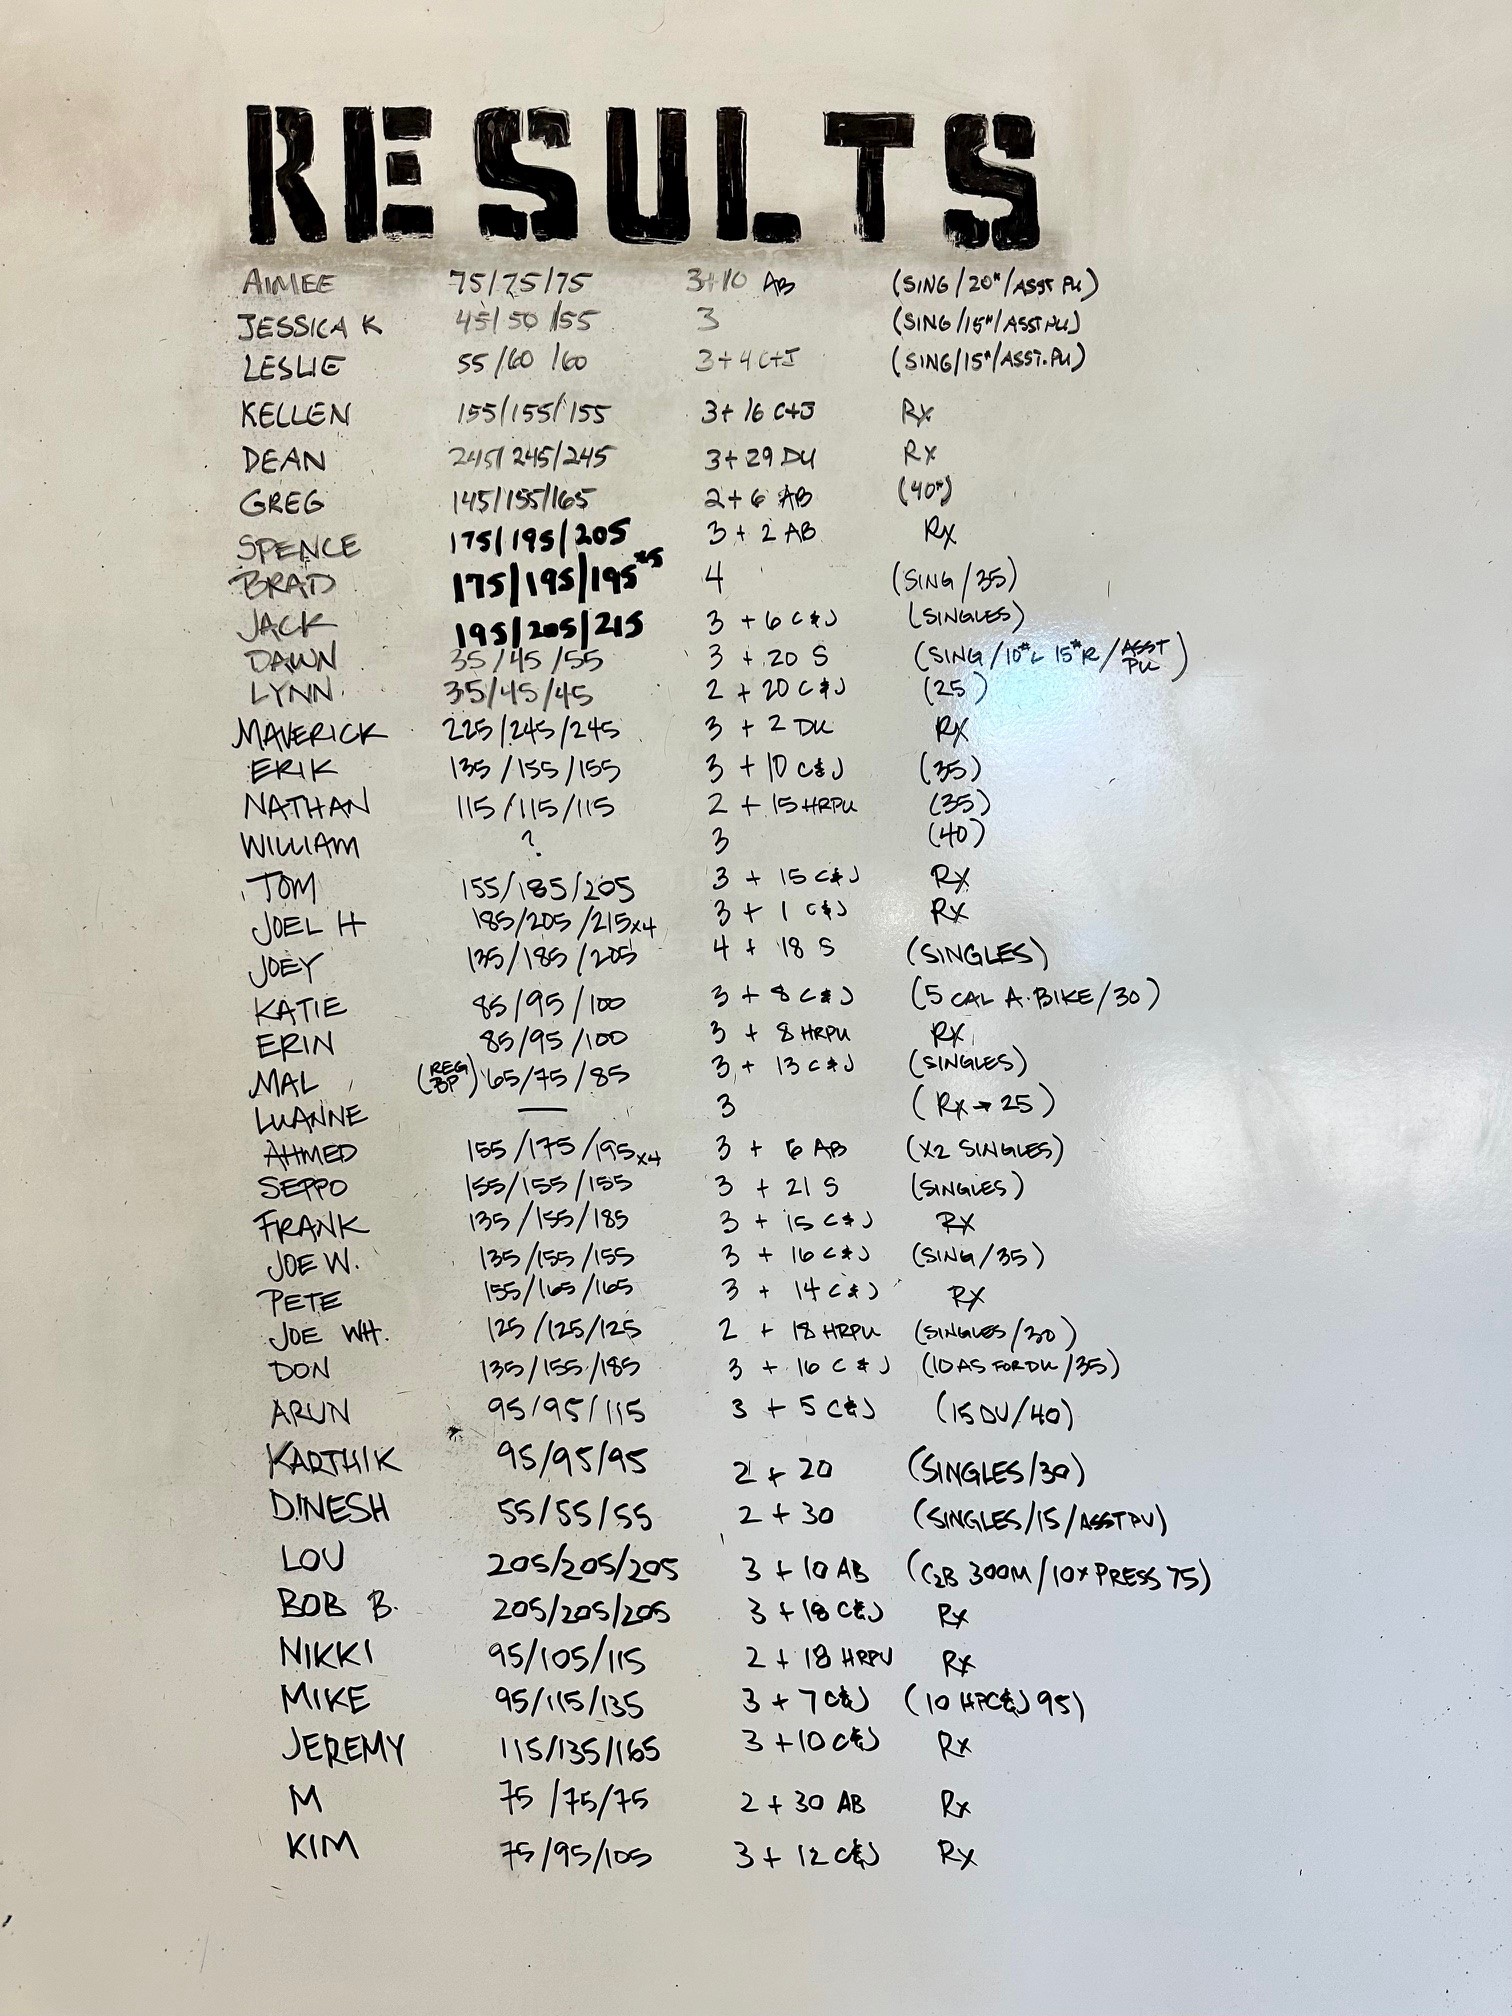 RESULTS
AIMEE 75/75/75 3+10 AB (SING/20#/ASST PU)
JESSICA K 45/50/55 3 (SING/15#/ASST PU)
LESLIE 55/60/60 3+4 C+J (SING/15#/ASST.PU)
KELLEN 155/155/155 3+16 C+J Rx
DEAN 245/245/245 3+29 DU Rx
GREG 145/155/165 2+6 AB (40#)
SPENCE 175/195/205 3+2 AB Rx
BRAD 175/195/195 x5 4 (SING/35)
JACK 195/205/215 3 + 6 C&J (SINGLES)
DAWN 35/45/55 3 + 20 S (SING/10#L 15#R/ASST PU)
LYNN 35/45/45 2 + 20 C&J (25)
MAVERICK 225/245/245 3 + 2 DU Rx
ERIK 135/155/155 3 + 10 C&J (35)
NATHAN 115/115/115 2 + 15 HRPU (35)
WILLIAM ? 3 (40)
TOM 155/185/205 3 + 15 C&J Rx
JOEL H 185/205/215x4 3 + 1 C&J Rx
JOEY 135/185/205 4 + 18 S (SINGLES)
KATIE 85/95/100 3 + 8 C&J (5 CAL A.BIKE/30)
ERIN 85/95/100 3 + 8 HRPU Rx
MAL (REG BP) 65/75/85 3 + 13 C&J (SINGLES)
LUANNE — 3 (Rx→25)
AHMED 155/175/195x4 3 + 6 AB (X2 SINGLES)
SEPPO 155/155/155 3 + 21 S (SINGLES)
FRANK 135/155/185 3 + 15 C&J Rx
JOE W. 135/155/155 3 + 16 C&J (SING/35)
PETE 155/165/165 3 + 14 C&J Rx
JOE WH. 125/125/125 2 + 18 HRPU (SINGLES/30)
DON 135/155/185 3 + 16 C&J (10 AS FOR DU/35)
ARUN 95/95/115 3 + 5 C&J (15 DU/40)
KARTHIK 95/95/95 2 + 20 (SINGLES/30)
DINESH 55/55/55 2 + 30 (SINGLES/15/ASST PU)
LOU 205/205/205 3 + 10 AB (C2B 300M/10x PRESS 75)
BOB B. 205/205/205 3 + 18 C&J Rx
NIKKI 95/105/115 2 + 18 HRPU Rx
MIKE 95/115/135 3 + 7 C&J (10 HPC&J 95)
JEREMY 115/135/165 3 + 10 C&J Rx
M 75/75/75 2 + 30 AB Rx
KIM 75/95/105 3 + 12 C&J Rx